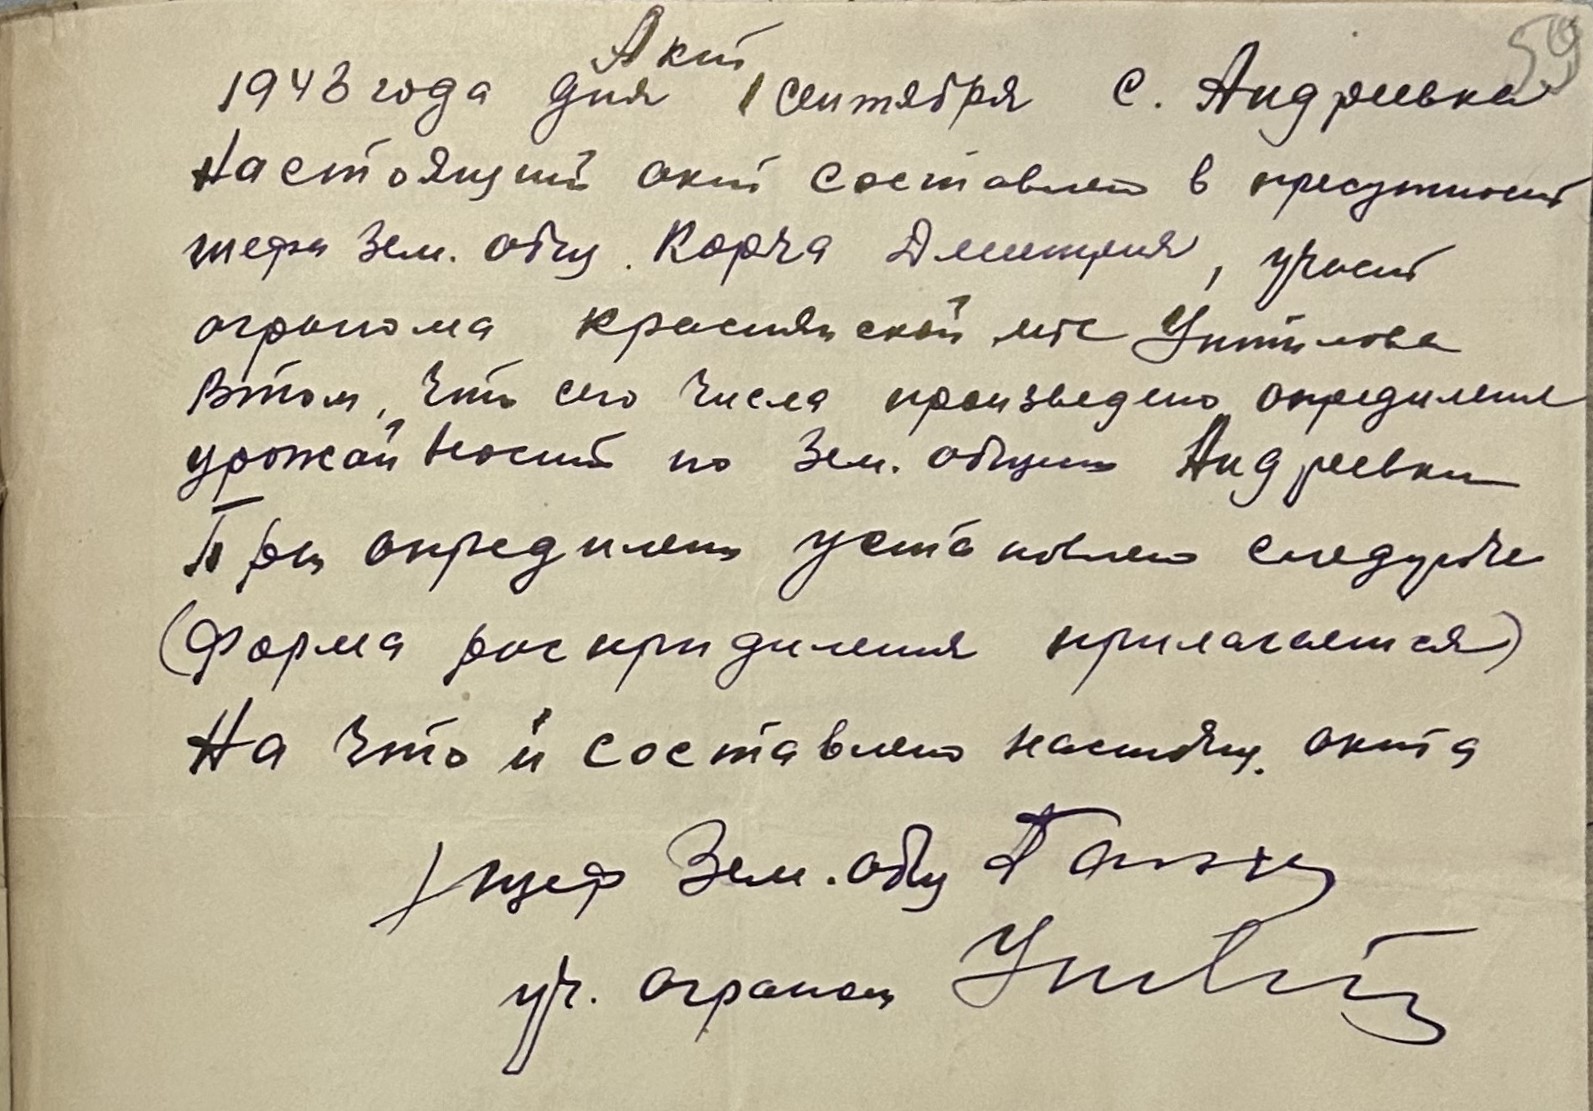 59
Акт
1943 года дня 1 сентября с. Андреевка
Настоящий акт составлен в присутност
шефа Зем. общ. Корча Дмитрия, участ
агронома краснянской мтс
Втом, что сего числа произведено определение
урожайность по Зем. общин Андреевки
При определен установлено следующе
(Форма распридиления прилагается)
На что и составлено настоящ. акта
шеф Зем. общ
уч. агроном